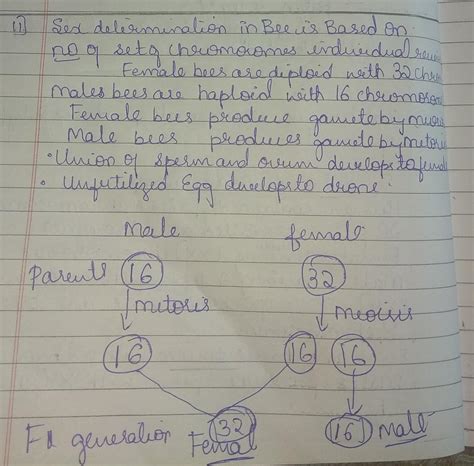 (1) Sex determination in Bee is Based on
no of set of chromosomes individual
Female bees are diploid with 32
males bees are haploid with 16
Female bees produce gamete by
Male bees produces gamete by
• Union of sperm and ovum develops to
• Unfertilized Egg develops to drone.
Male female
Parents 16 32
mitosis meiosis
16 16 16
32 16 male
F1 generation Femal